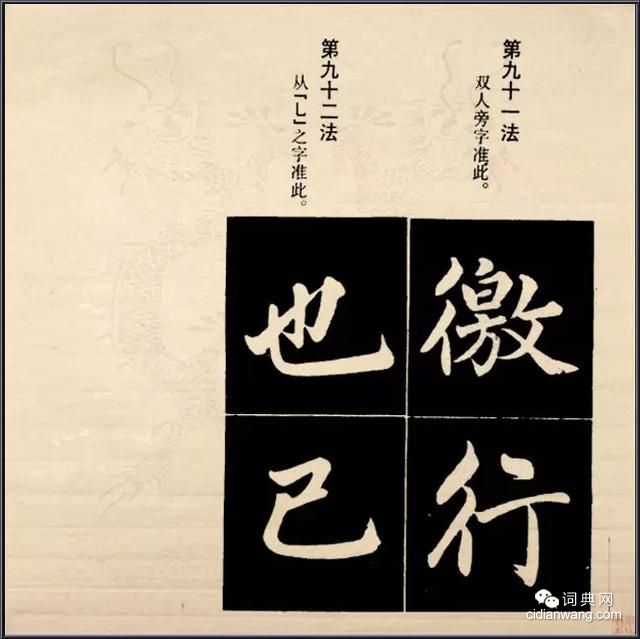 第九十一法
双人旁字准此。
第九十二法
从「乚」之字准此。
徼行
也已
词典网
cidianwang.com